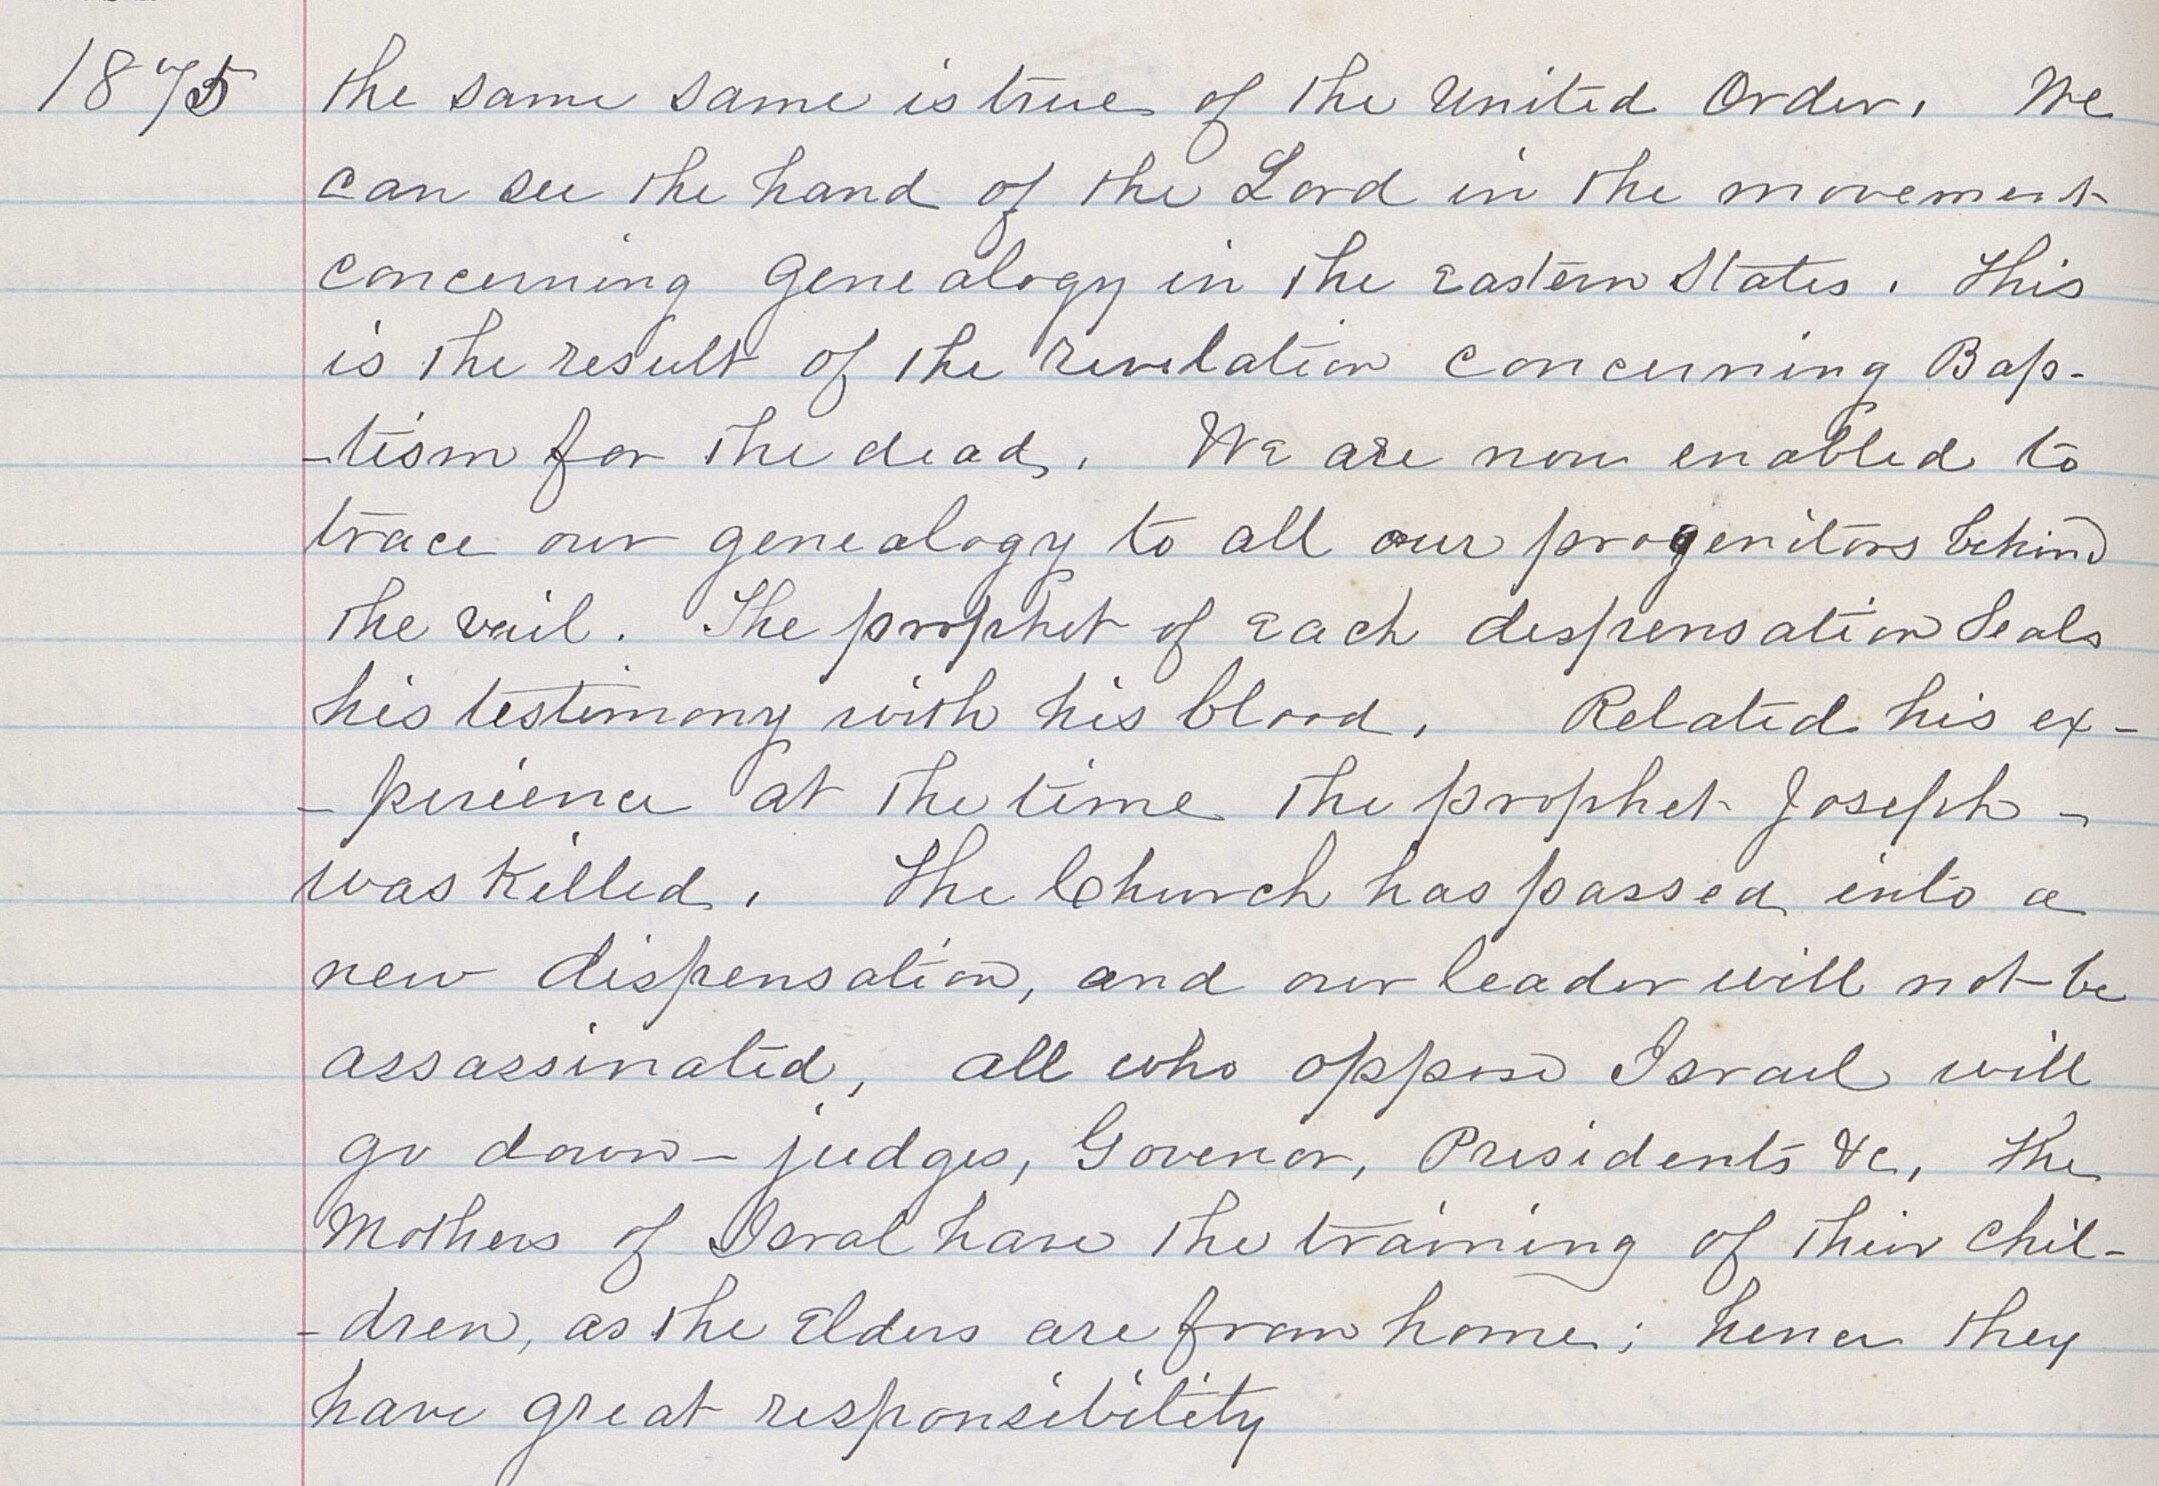 1875 the same same is true of the United Order. We
can see the hand of the Lord in the movement
concerning genealogy in the Eastern States. This
is the result of the revelation concerning Bap-
-tism for the dead. We are now enabled to
trace our genealogy to all our progenitors behind
the vail. The prophet of each dispensation seals
his testimony with his blood. Related his ex-
-perience at the time the prophet Joseph -
was killed. The Church has passed into a
new dispensation, and our leader will not be
assassinated, all who oppose Israel will
go down - judges, Govenor, Presidents &c, The
Mothers of Isral have the training of their chil-
-dren, as the Elders are from home; hence they
have great responsibility